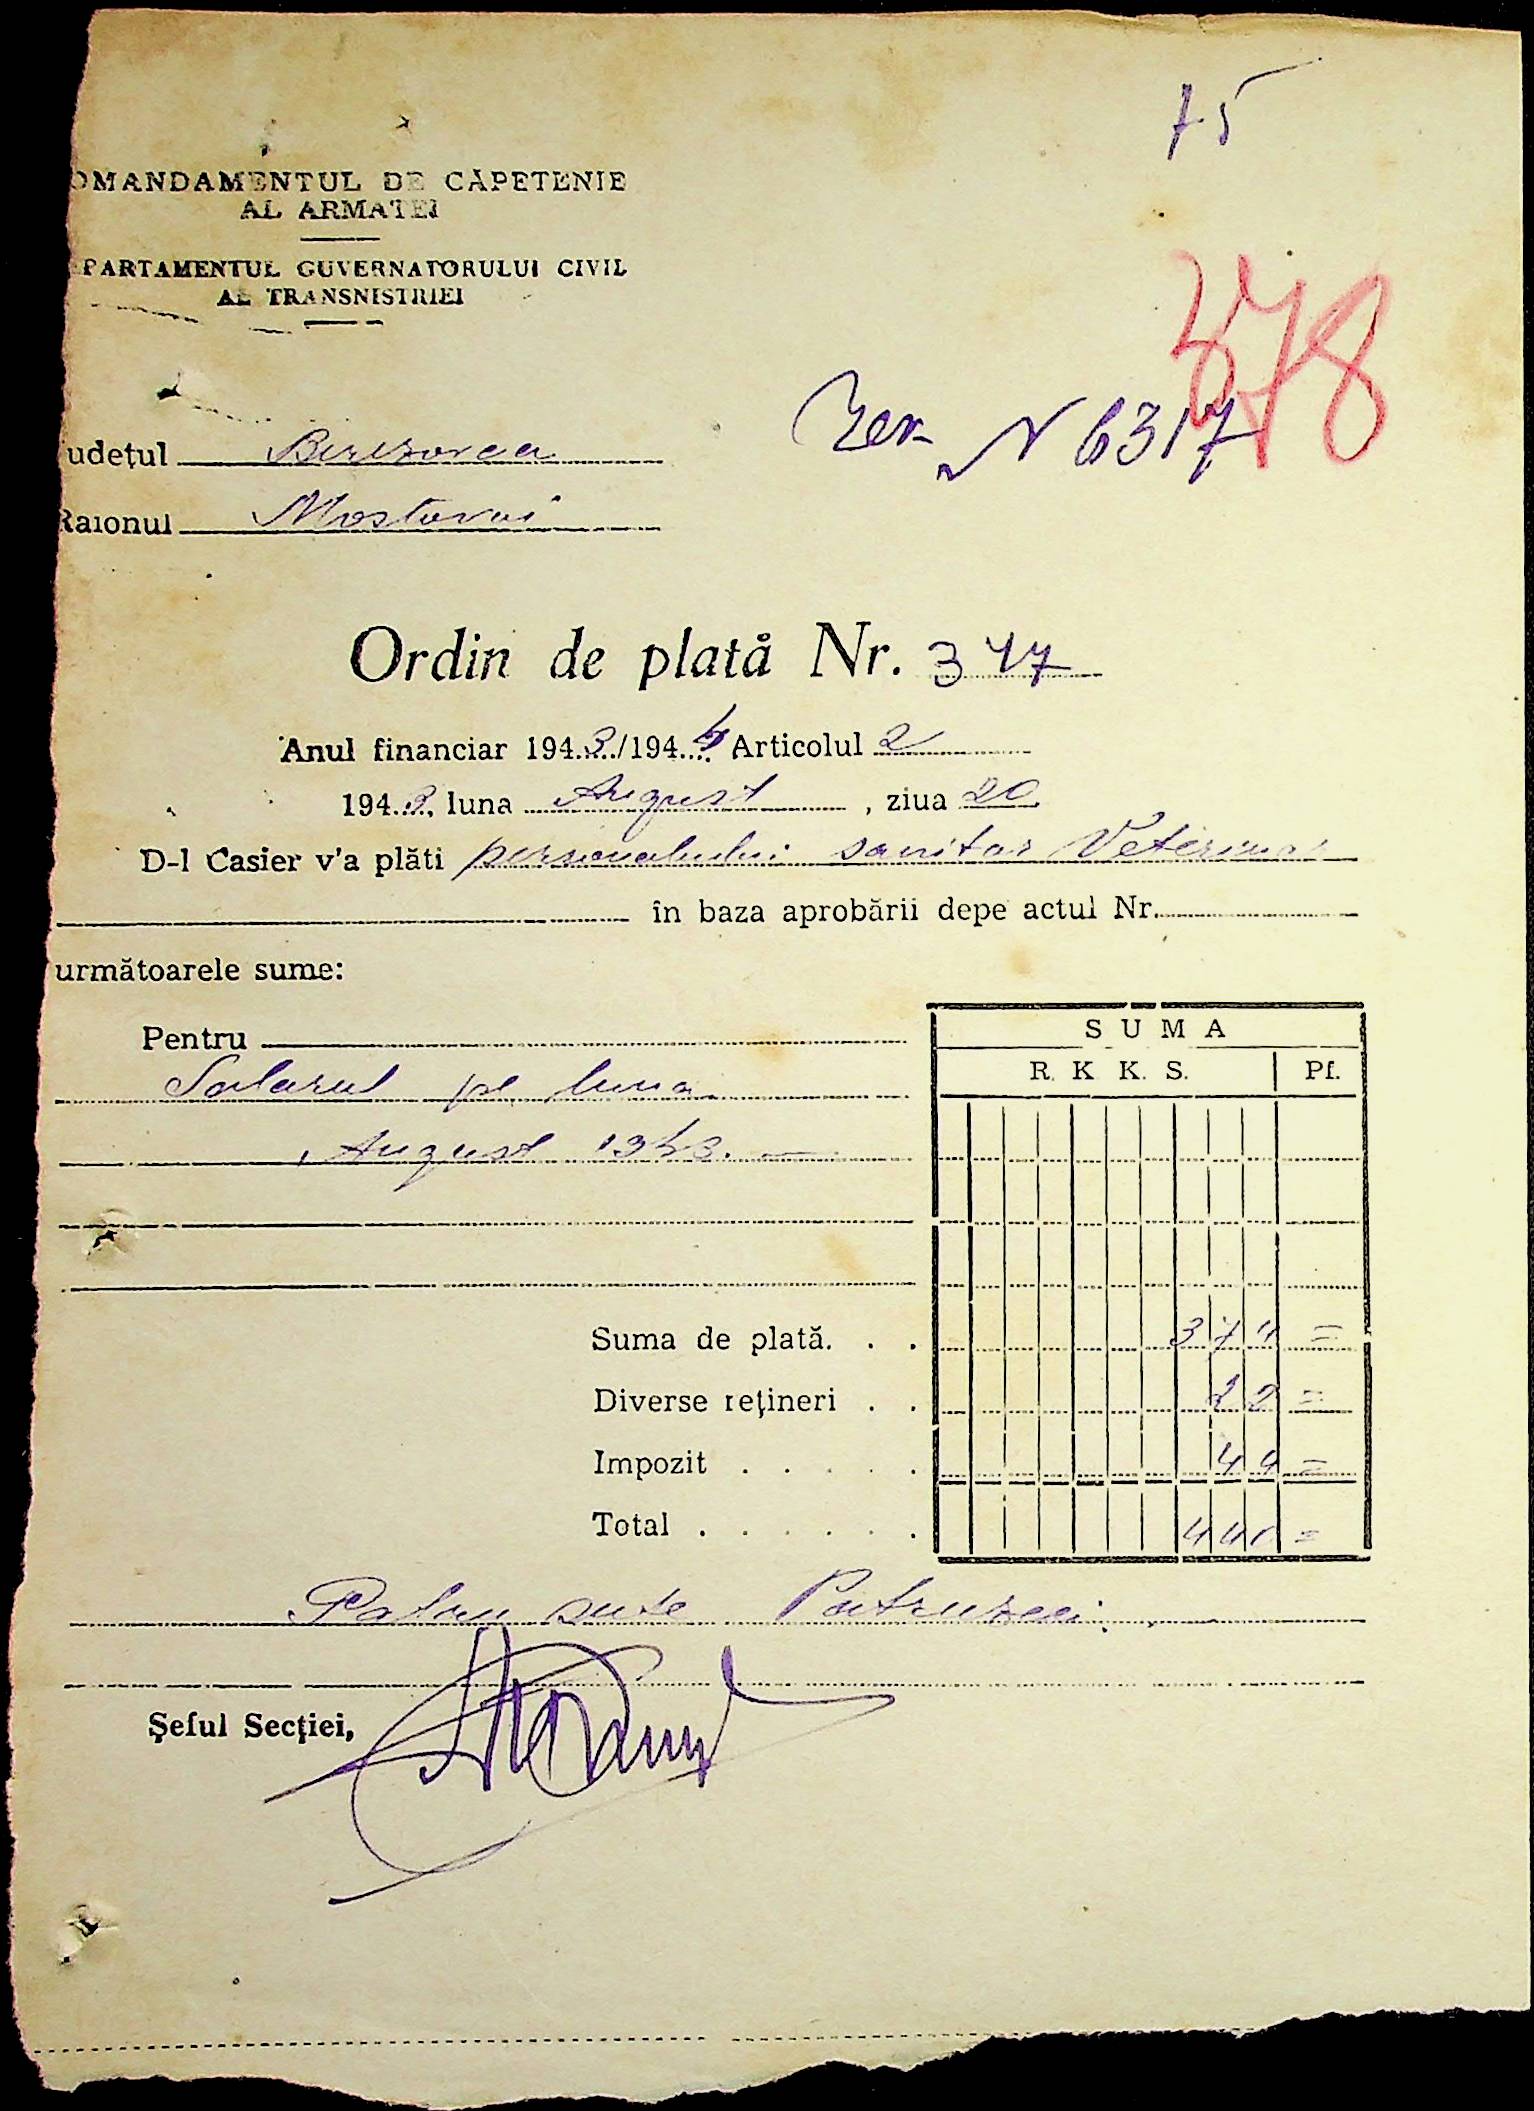 75
OMANDAMENTUL DE CĂPETENIE
AL ARMATEI
PARTAMENTUL GUVERNATORULUI CIVIL
AL TRANSNISTRIEI
378
N 6317
udețul Berezovca
Raionul Mostovoi
Ordin de plată Nr. 377
Anul financiar 1943/1944 Articolul 2
1943, luna August, ziua 20
D-l Casier v'a plăti personalului sanitar Veterinar
în baza aprobării depe actul Nr.
următoarele sume:
Pentru
Salarul pe luna
August 1943. —
SUMA
R. K. K. S. Pf.
Suma de plată. . . 374 =
Diverse rețineri . . 22 =
Impozit . . . . . 44 =
Total . . . . . . 440 =
Patru sute Patruzeci
Șeful Secției,